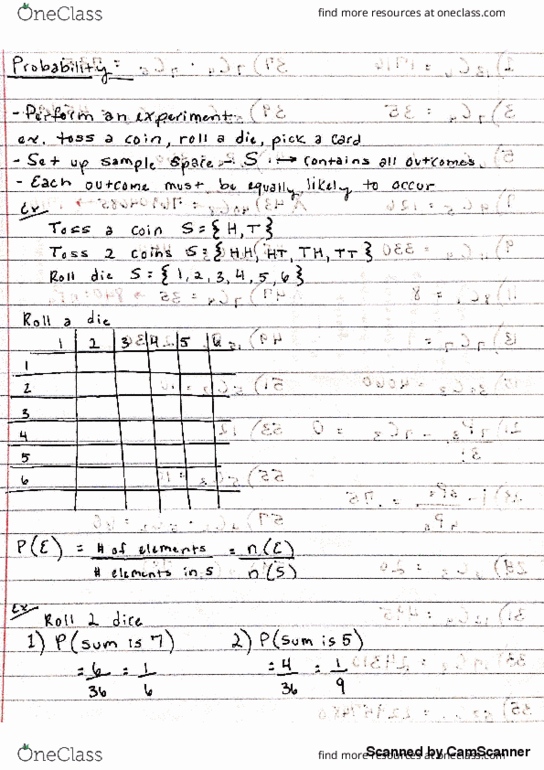 OneClass
find more resources at oneclass.com
Probability:
- Perform an experiment
ex. toss a coin, roll a die, pick a card
- Set up sample space - S → contains all outcomes.
- Each outcome must be equally likely to occur
Ex
Toss a coin S = { H, T }
Toss 2 coins S = { HH, HT, TH, TT }
Roll die S = { 1, 2, 3, 4, 5, 6 }
Roll a die
1 2 3 4 5 6
1
2
3
4
5
6
P(E) = # of elements / # elements in S = n(E) / n(S)
Ex Roll 2 dice
1) P(sum is 7) 2) P(sum is 5)
= 6/36 = 1/6 = 4/36 = 1/9
OneClass
find more resources at oneclass.com
Scanned by CamScanner